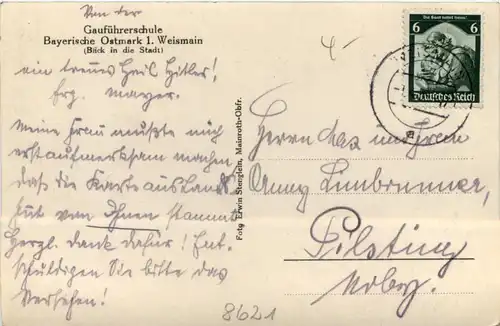 Von der
Gauführerschule
Bayerische Ostmark 1. Weismain
(Blick in die Stadt)
ein treues Heil Hitler!
Frz. Mayer.
Meine Frau mußte mich
erst aufmerksam machen,
daß die Karte aus Lands-
hut von Ihnen stammt
Herzl. Dank dafür! Ent-
schuldigen Sie bitte das
Versehen!
Foto Erwin Stenglein, Mainroth-Obfr.
Die Saar kehrt heim!
6 6
Deutsches Reich
a
Herrn und Frau
Limbrunner,
Pilsting
Ndby.
8621